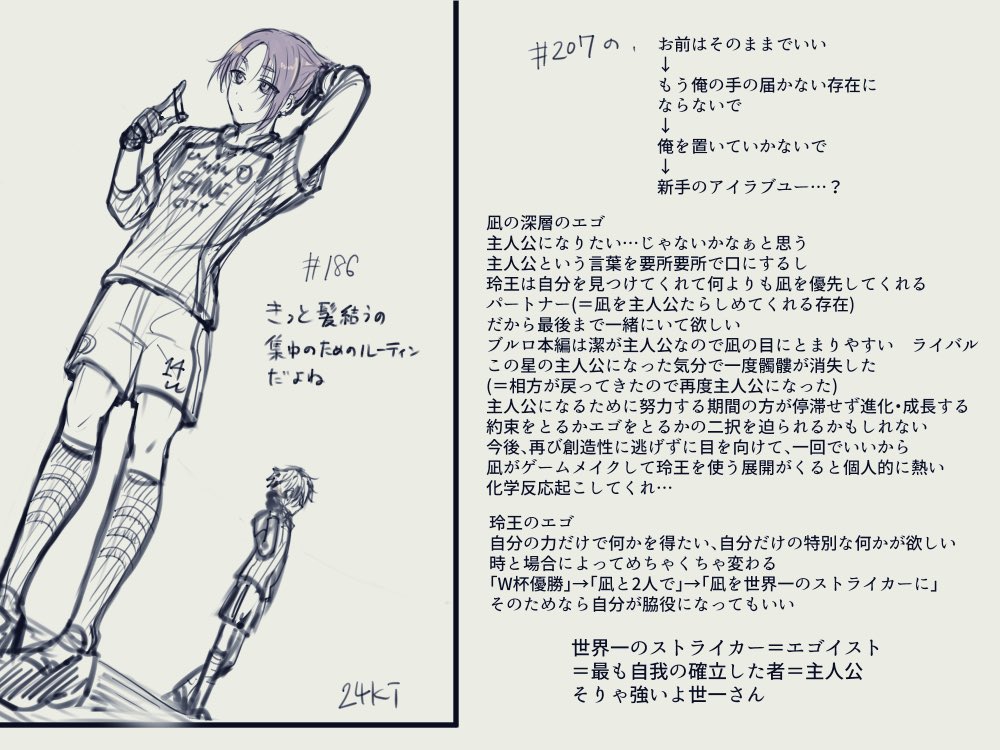 #207の、
お前はそのままでいい
↓
もう俺の手の届かない存在に
ならないで
↓
俺を置いていかないで
↓
新手のアイラブユー…？
凪の深層のエゴ
主人公になりたい…じゃないかなぁと思う
主人公という言葉を要所要所で口にするし
玲王は自分を見つけてくれて何よりも凪を優先してくれる
パートナー(＝凪を主人公たらしめてくれる存在)
だから最後まで一緒にいて欲しい
ブルロ本編は潔が主人公なので凪の目にとまりやすい　ライバル
この星の主人公になった気分で一度髑髏が消失した
(＝相方が戻ってきたので再度主人公になった)
主人公になるために努力する期間の方が停滞せず進化・成長する
約束をとるかエゴをとるかの二択を迫られるかもしれない
今後、再び創造性に逃げずに目を向けて、一回でいいから
凪がゲームメイクして玲王を使う展開がくると個人的に熱い
化学反応起こしてくれ…
玲王のエゴ
自分の力だけで何かを得たい、自分だけの特別な何かが欲しい
時と場合によってめちゃくちゃ変わる
「W杯優勝」→「凪と2人で」→「凪を世界一のストライカーに」
そのためなら自分が脇役になってもいい
世界一のストライカー＝エゴイスト
＝最も自我の確立した者＝主人公
そりゃ強いよ世一さん
#186
きっと髪結うの
集中のためのルーティン
だよね
SHINE
CITY
14
24KT